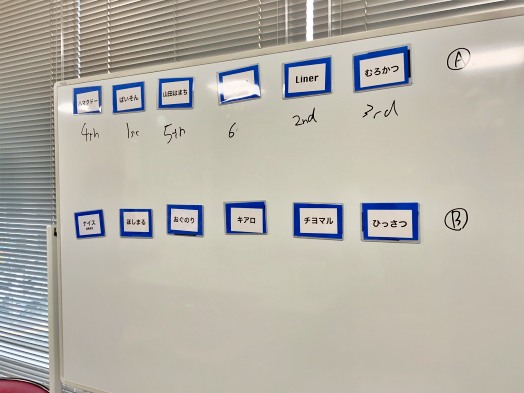 ぱいそん 山田はまち Liner むろかつ A
4th 1st 5th 6 2nd 3rd
ナイス ほしまる おぐのり キアロ チヨマル ひっさつ B